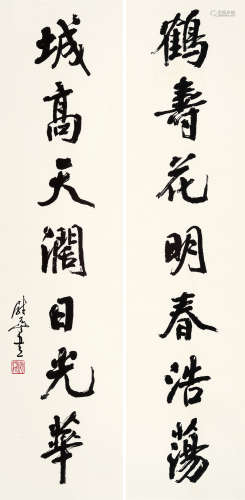 鶴壽花明春浩蕩
城高天濶日光華